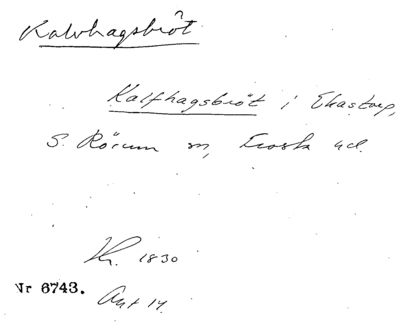 Kalvhagsbröt
Kalfhagsbröt i Ekastorp,
S. Rörum sn, Frosta hd.
Kr. 1830
Nr 6743.
Akt 14.